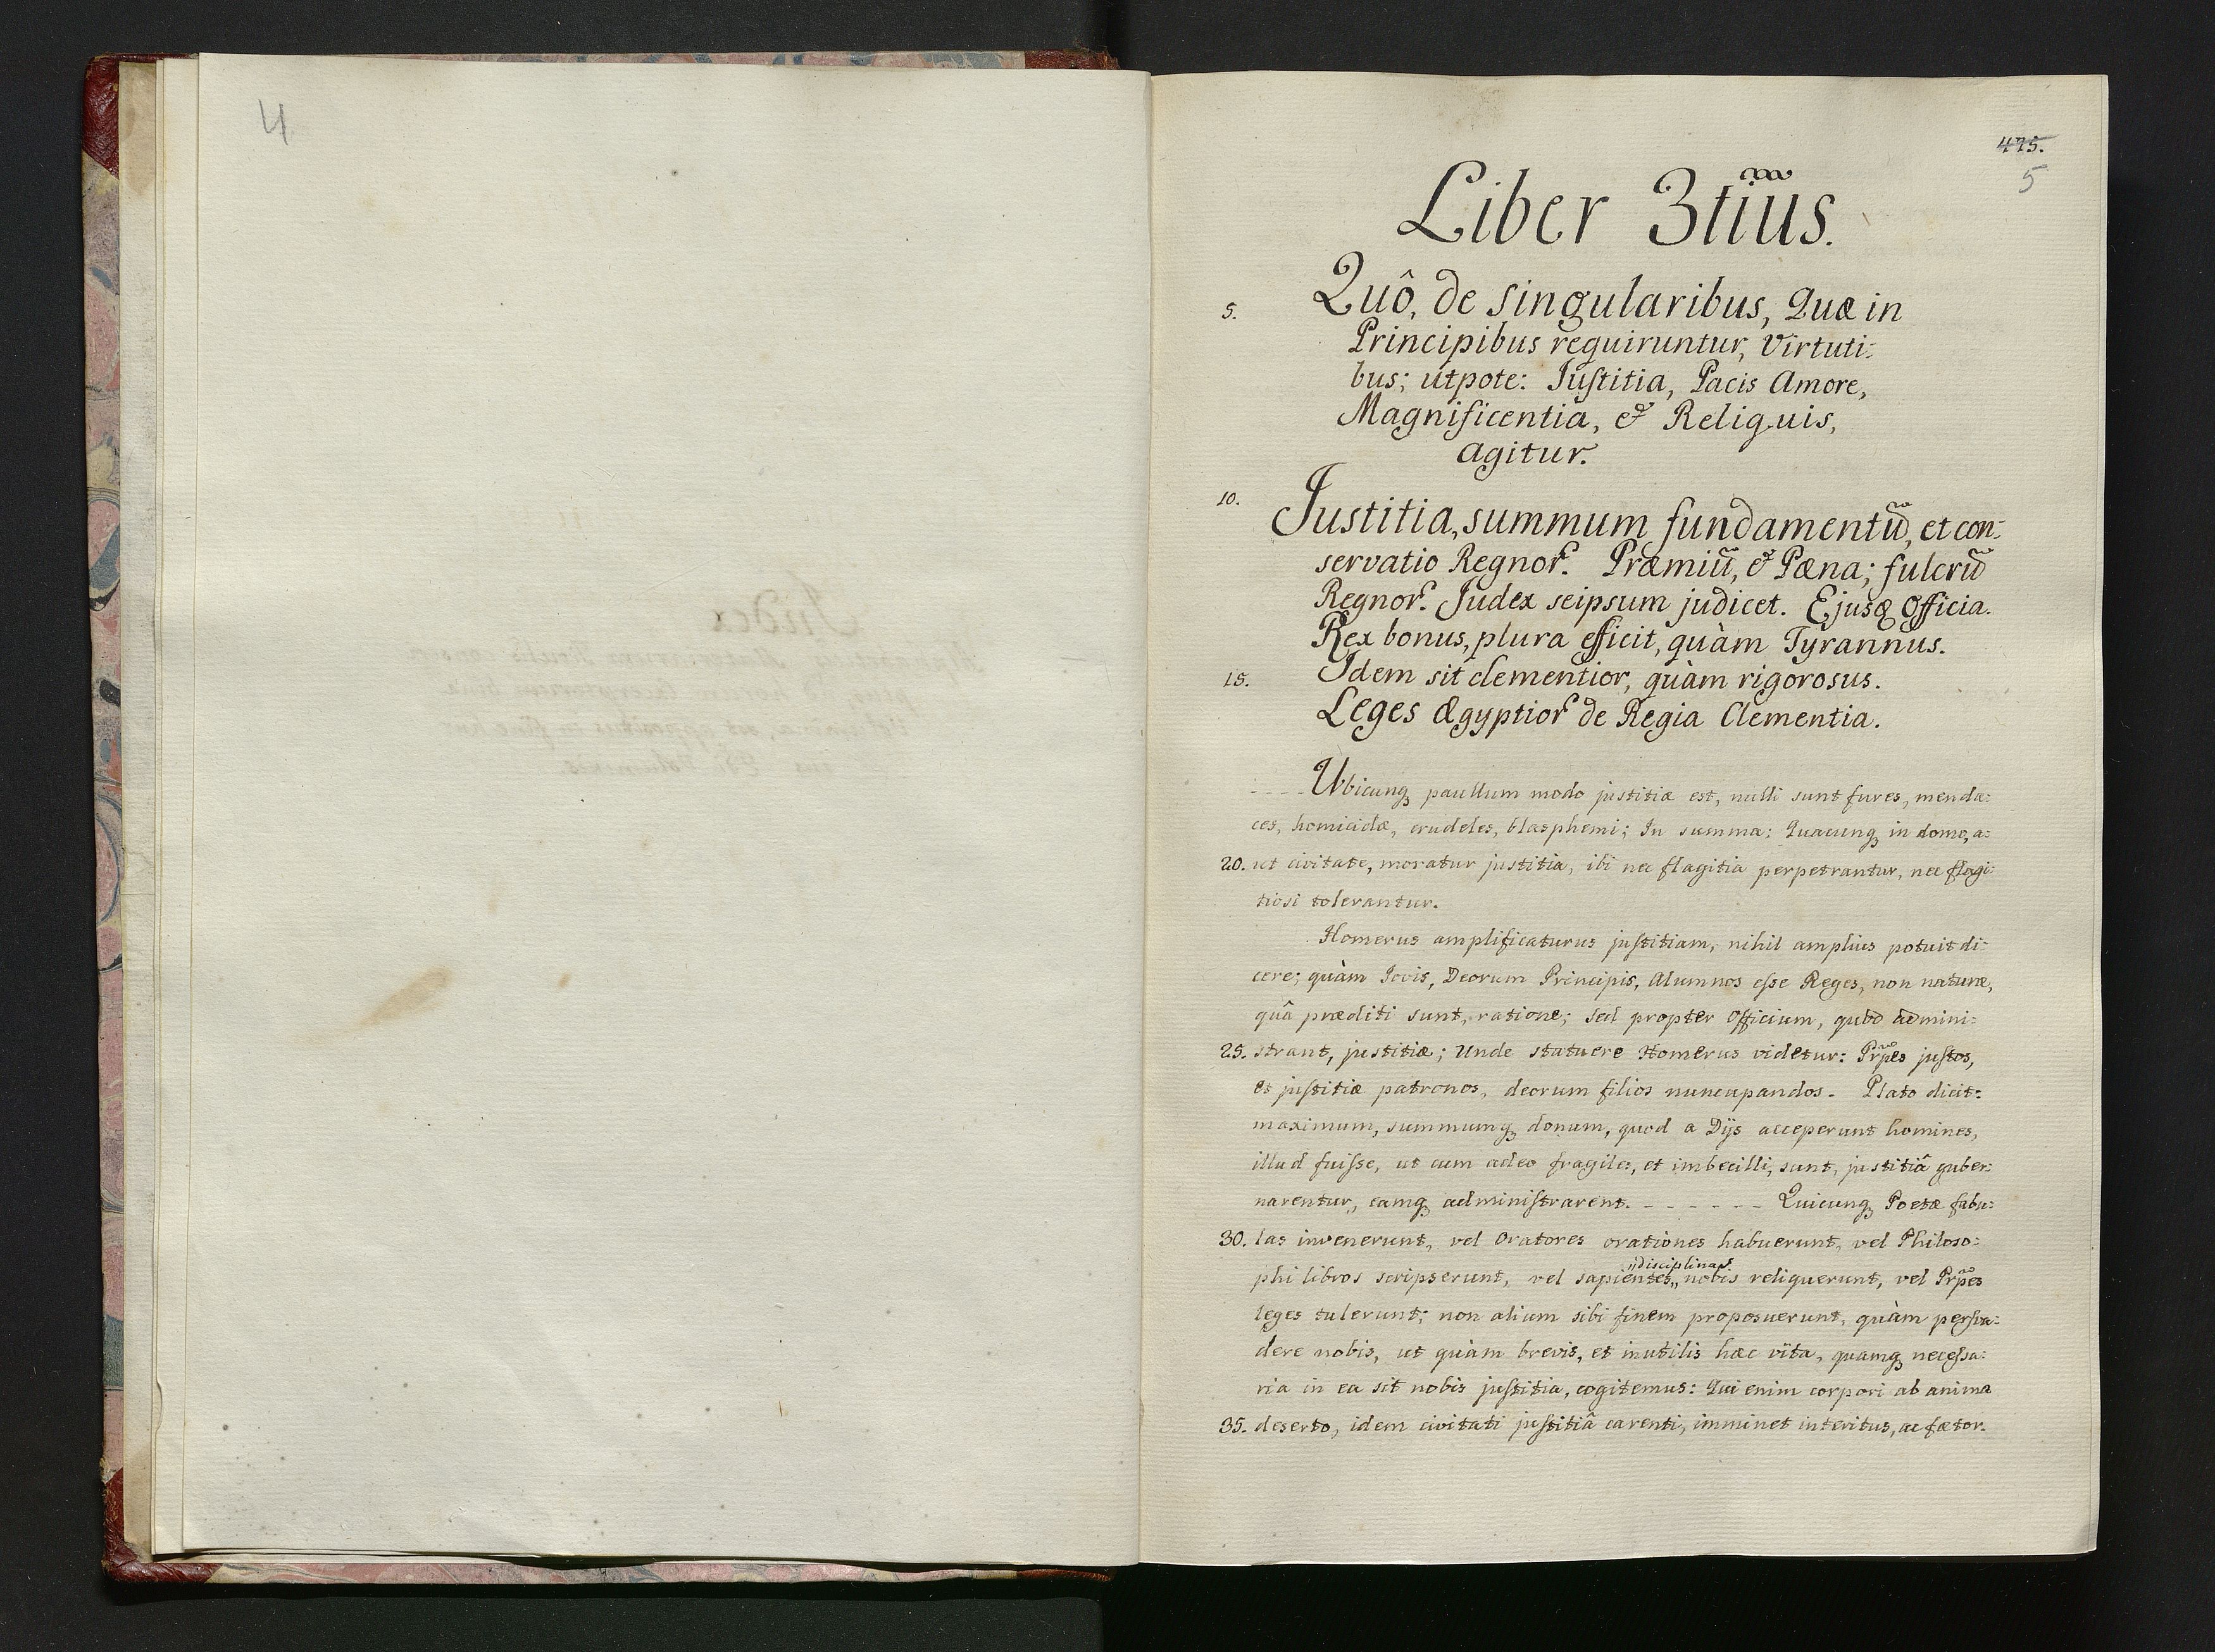 4
475.
5
Liber 3tiüs.
5. Quô, de singularibus, Quæ in
Principibus requiruntur, Virtuti:
bus; utpote: Justitia, Pacis Amore,
Magnificentia, & Reliquis,
agitur.
10. Justitia, summum fundamentu͠, et con:
servatio Regnor. Præmiu͠, & Pæna; fulcru͠
Regnor. Judex seipsum judicet. Ejusq Officia.
Rex bonus, plura efficit, quàm Tyrannus.
15. Idem sit clementior, quàm rigorosus.
Leges Ægyptior de Regia Clementia.
- - - - Ubicunq paullum modo justitiæ est, nulli sunt fures, menda:
ces, homicidæ, crudeles, blasphemi; In summa: Quacunq in domo, a:
20. ut civitate, moratur justitia, ibi nec flagitia perpetrantur, nec flagi:
tiosi tolerantur.
Homerus amplificaturus justitiam, nihil amplius potuit di:
cere; quàm Iovis, Deorum Principis, Alumnos esse Reges, non naturæ,
quâ præditi sunt, ratione; sed propter Officium, quod admini:
25. strant, justitiæ; Unde statuere Homerus videtur: Pr͠pes justos,
et justitiæ patronos, deorum filios nuncupandos. Plato dicit:
maximum, summumq donum, quod a Dijs acceperunt homines,
illud fuisse, ut cum adeo fragiles, et imbecilli, sunt, justitiâ guber:
narentur, eamq administrarent. - - - - - - Quicunq Poetæ fabu:
30. las invenerunt, vel Oratores orationes habuerunt, vel Philoso:
phi libros scripserunt, vel sapientes,, ,,disciplinas nobis reliquerunt, vel Pr͠pes
leges tulerunt; non alium sibi finem proposuerunt, quàm persva:
dere nobis, ut quàm brevis, et inutilis hæc vita, quamq necessa:
ria in ea sit nobis justitia, cogitemus: Qui enim corpori ab anima
35. deserto, idem civitati justitiâ carenti, imminet interitus, ac fætor.